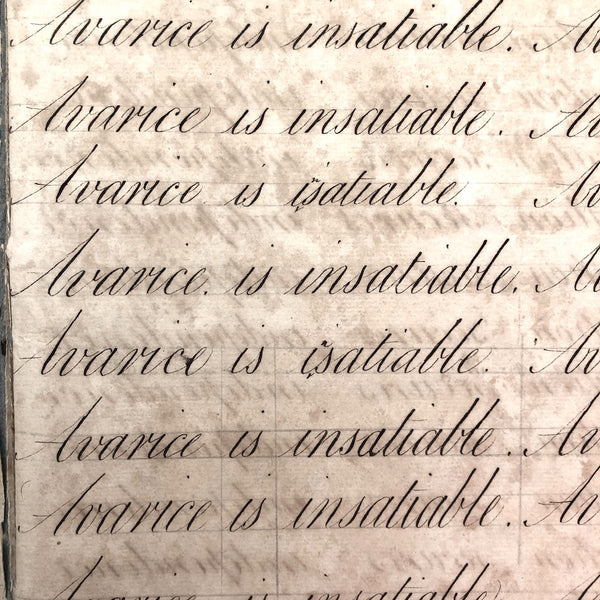 Avarice is insatiable.
Avarice is insatiable.
Avarice is isatiable.
Avarice. is insatiable.
Avarice is isatiable.
Avarice is insatiable.
Avarice is insatiable.
Avarice is insatiable